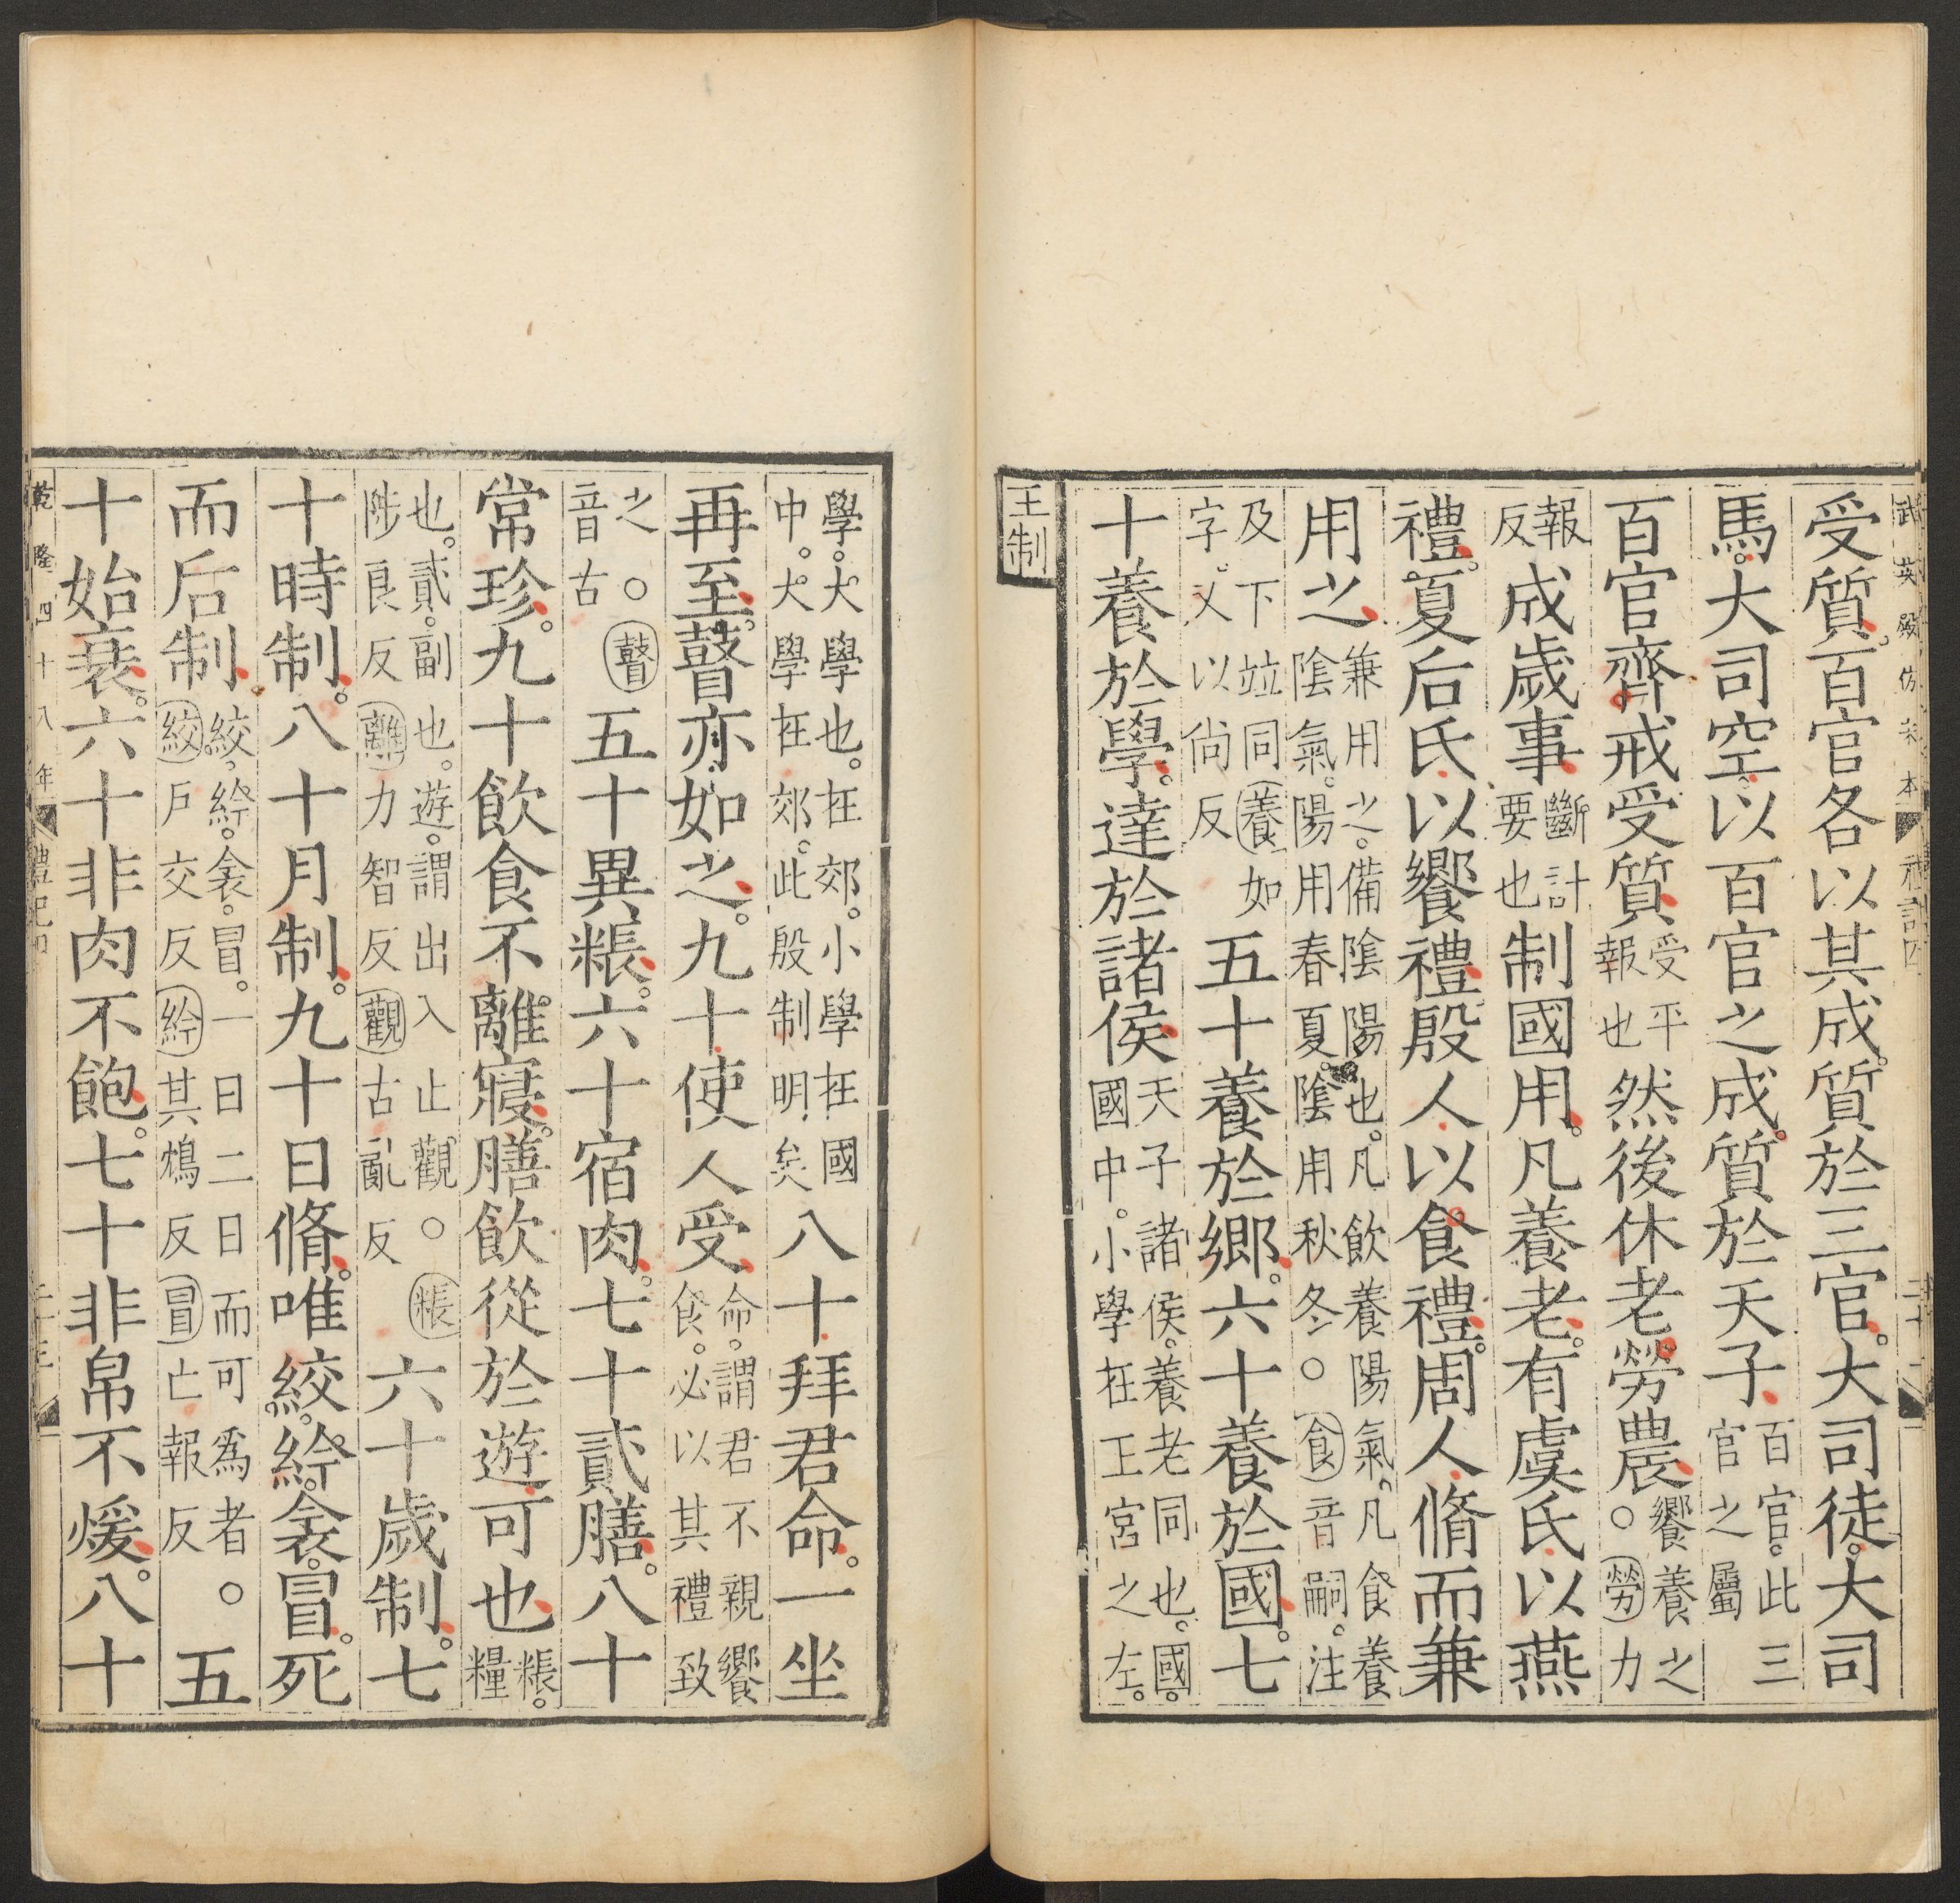 武英殿仿宋本 禮記四 二十二
受質百官各以其成質於三官大司徒大司
馬大司空以百官之成質於天子百官此三官之屬
百官齊戒受質受平報也然後休老勞農饗養之○勞力
報反成歲事斷計要也制國用凡養老有虞氏以燕
禮夏后氏以饗禮殷人以食禮周人脩而兼
用之兼用之備陰陽也凡飲養陽氣凡食養陰氣陽用春夏陰用秋冬○食音嗣注
及下竝同養如字又以尚反五十養於鄉六十養於國七
十養於學達於諸侯天子諸侯養老同也國國中小學在王宮之左
王制
學大學也在郊小學在國中大學在郊此殷制明矣八十拜君命一坐
再至瞽亦如之九十使人受命謂君不親饗食必以其禮致
之○瞽音古五十異粻六十宿肉七十貳膳八十
常珍九十飲食不離寢膳飲從於遊可也粻糧
也貳副也遊謂出入止觀○粻陟良反離力智反觀古亂反六十歲制七
十時制八十月制九十日脩唯絞紟衾冒死
而后制絞紟衾冒一日二日而可為者○絞戶交反紟其鴆反冒亡報反五
十始衰六十非肉不飽七十非帛不煖八十
乾隆四十八年 禮記四 二十三